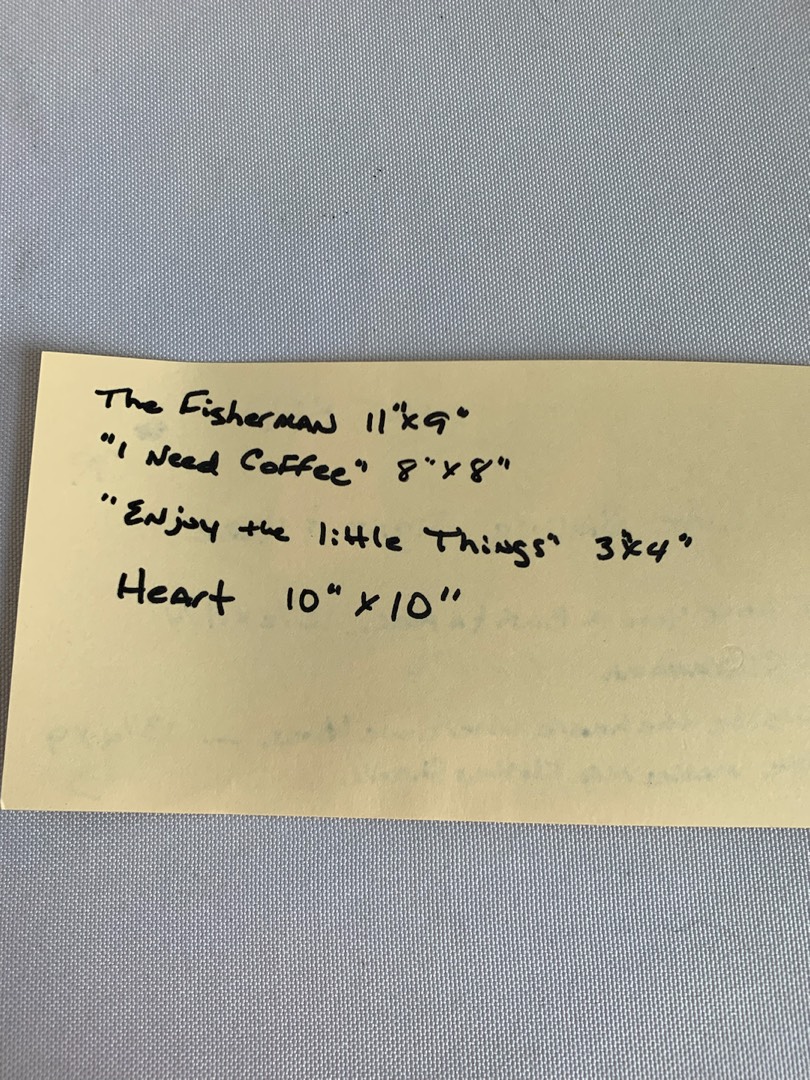 The Fisherman 11"x9"
"I Need Coffee" 8"x8"
"Enjoy the little Things" 3"x4"
Heart 10" x 10"